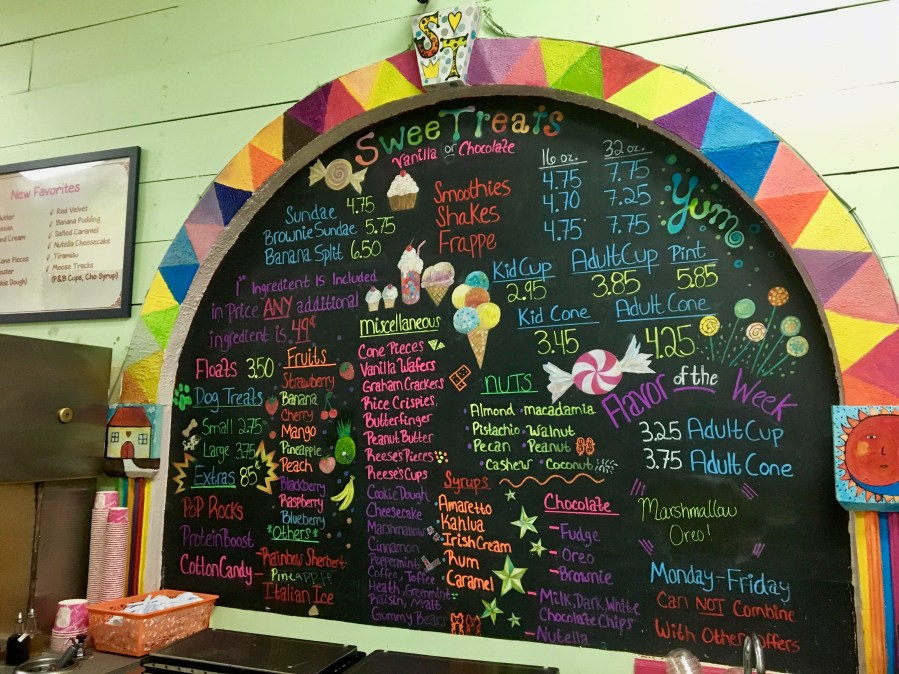 ST
SweeTreats
Vanilla or Chocolate
Sundae 4.75
Brownie Sundae 5.75
Banana Split 6.50
16 oz. 32 oz.
Smoothies 4.75 7.75
Shakes 4.70 7.25
Frappe 4.75 7.75
Yum
Kid Cup Adult Cup Pint
2.95 3.85 5.85
Kid Cone Adult Cone
3.45 4.25
1st Ingredient is Included
in Price ANY additional
ingredient is 49¢
Floats 3.50
Dog Treats
Small 2.75
Large 3.75
Extras 85¢
Pop Rocks
Protein Boost
Cotton Candy
Fruits
Strawberry
Banana
Cherry
Mango
Pineapple
Peach
Blackberry
Raspberry
Blueberry
*Others*
Rainbow Sherbert
Pineapple
Italian Ice
Miscellaneous
Cone Pieces
Vanilla Wafers
Graham Crackers
Rice Crispies
Butterfinger
Peanut Butter
Reese's Pieces
Reese's Cups
Cookie Dough
Cheesecake
Marshmallow
Cinnamon
Peppermint
Coffee, Toffee
Heath,
Raisin, Malt
Gummy Bears
Nuts
Almond • macadamia
Pistachio • Walnut
Pecan • Peanut
Cashew • Coconut
Syrups
Amaretto
Kahlua
Irish Cream
Rum
Caramel
Chocolate
- Fudge
- Oreo
- Brownie
- Milk, Dark, White
Chocolate Chips
- Nutella
Flavor of the Week
3.25 Adult Cup
3.75 Adult Cone
Marshmallow
Oreo!
Monday-Friday
Can NOT Combine
With Other offers
New Favorites
Red Velvet
Banana Pudding
Salted Caramel
Nutella Cheesecake
Tiramisu
Moose Tracks
(P&B Cups, Cho Syrup)